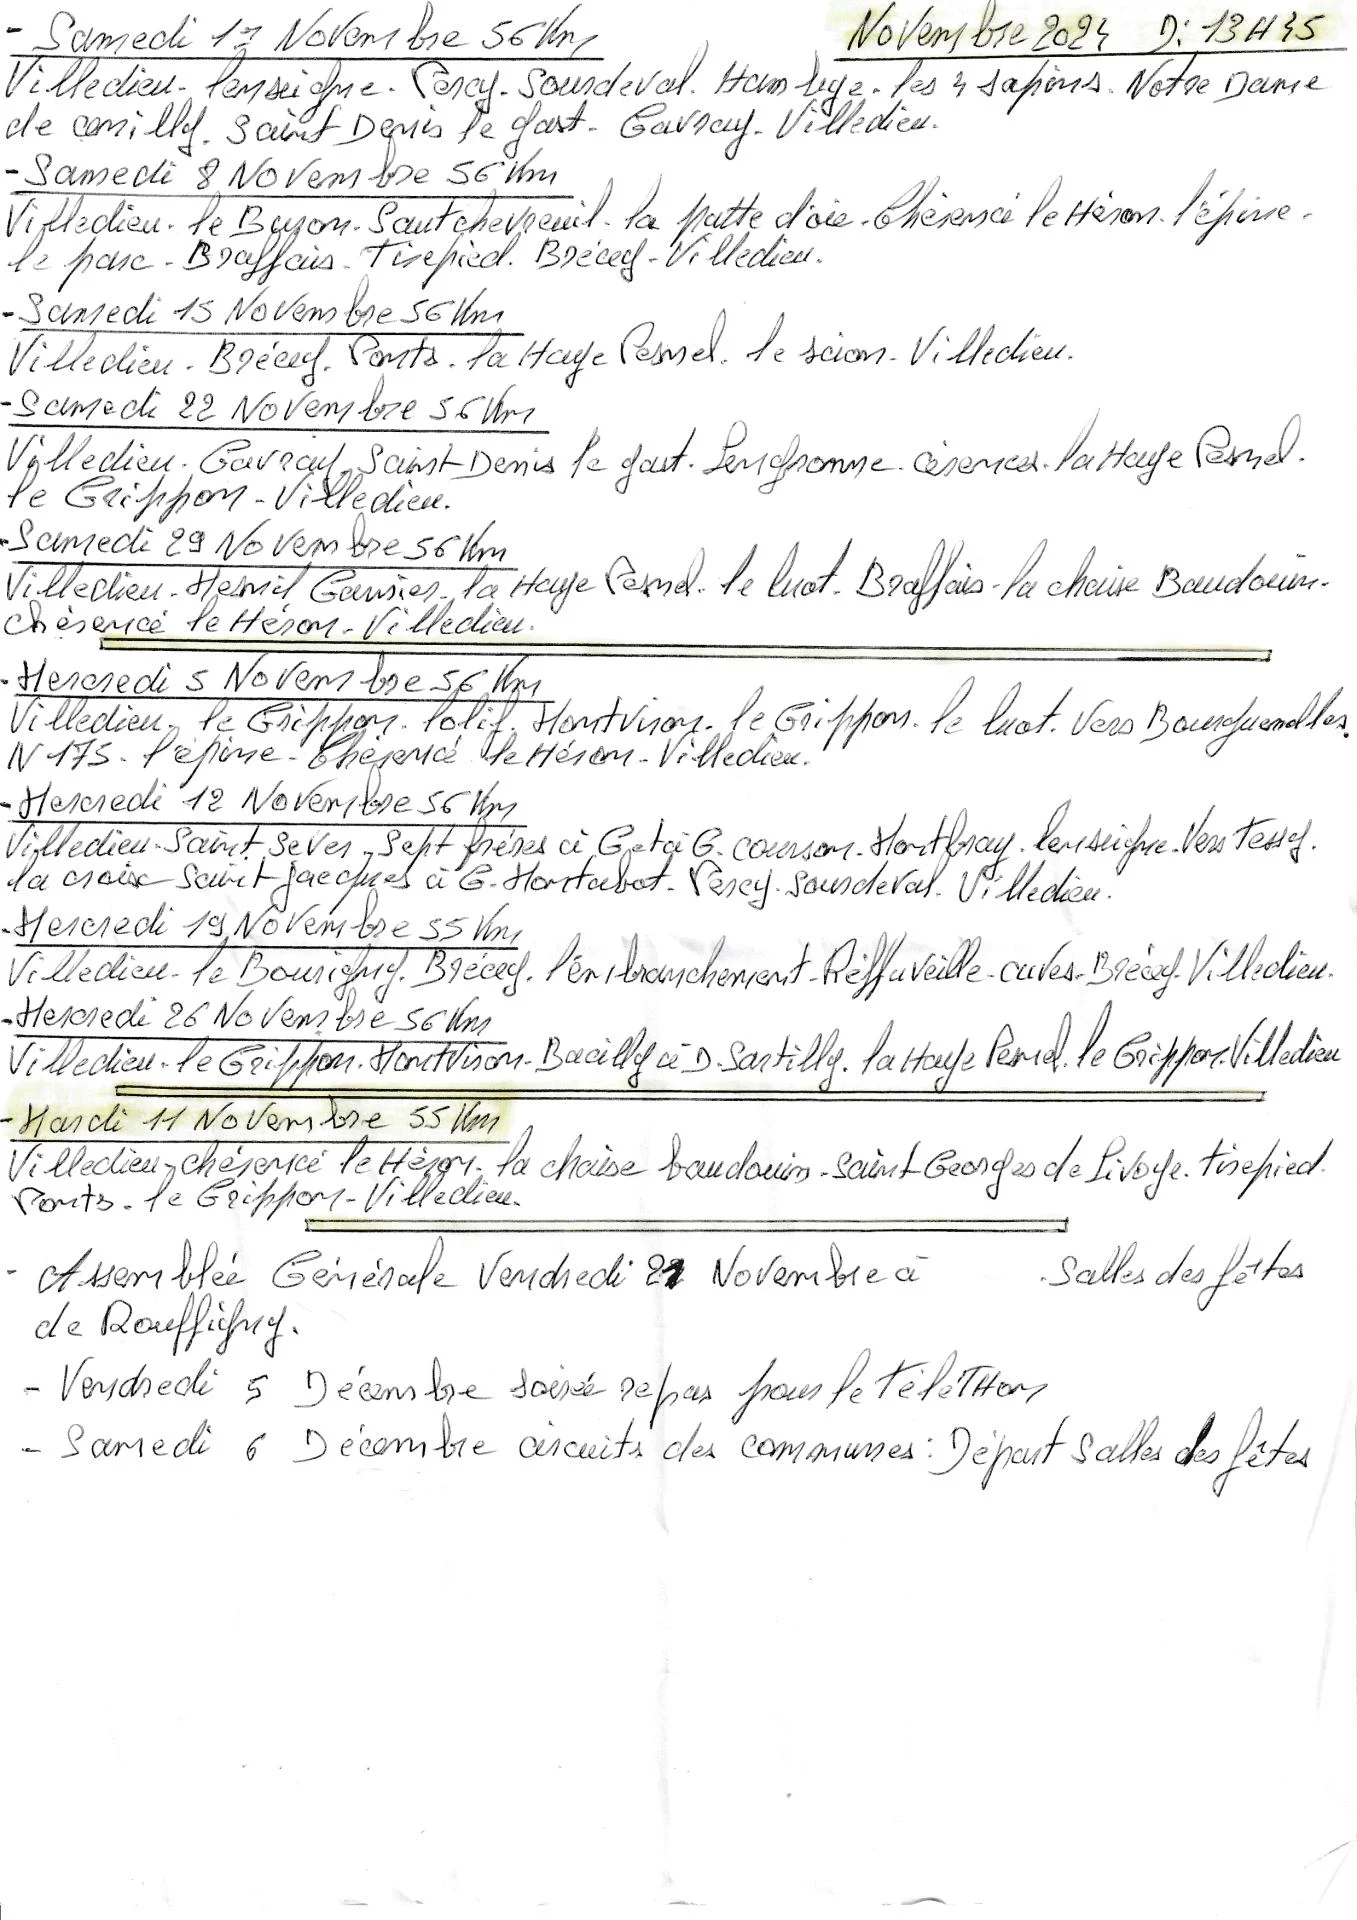 - Samedi 1er Novembre 56 Km
Novembre 2024 D: 13H45
Villedieu. lenseigne. Percy. Sourdeval. Hambye. les 4 sapins. Notre Dame
de cenilly. Saint Denis le gast. Gavray. Villedieu.
- Samedi 8 Novembre 56 Km
Villedieu. le Buson. Sautchevreuil. la patte d'oie. Chérencé le Héron. l'épine.
le parc. Braffais. Tirepied. Brécey. Villedieu.
- Samedi 15 Novembre 56 Km
Villedieu. Brécey. Ponts. la Haye Pesnel. le scion. Villedieu.
- Samedi 22 Novembre 56 Km
Villedieu. Gavray. Saint Denis le gast. Lengronne. cérences. la Haye Pesnel.
le Grippon. Villedieu.
- Samedi 29 Novembre 56 Km
Villedieu. Mesnil Garnier. la Haye Pesnel. le luot. Braffais. la chaise Baudouin.
chérencé le Héron. Villedieu.
- Mercredi 5 Novembre 56 Km
Villedieu. le Grippon. lolif. Montviron. le Grippon. le luot. Vers Bourguenolles.
N 175. l'épine. Chérencé le Héron. Villedieu.
- Mercredi 12 Novembre 56 Km
Villedieu. Saint Sever. Sept frères à G et à G. courson. Montbray. lenseigne. Vers Tessy.
la croix Saint jacques à G. Montabot. Percy. Sourdeval. Villedieu.
- Mercredi 19 Novembre 55 Km
Villedieu. le Bourigny. Brécey. l'émbranchement. Réffuveille. cuves. Brécey. Villedieu.
- Mercredi 26 Novembre 56 Km
Villedieu. le Grippon. Montviron. Bacilly à D. Sartilly. la Haye Pesnel. le Grippon. Villedieu
- Mardi 11 Novembre 55 Km
Villedieu. chérencé le Héron. la chaise baudouin. Saint Georges de Livoye. tirepied.
Ponts. le Grippon. Villedieu.
- Assemblée Générale Vendredi 21 Novembre à . Salles des fêtes
de Rouffigny.
- Vendredi 5 Décembre soirée repas pour le téléthon
- Samedi 6 Décembre circuits des communes : Départ Salles des fêtes